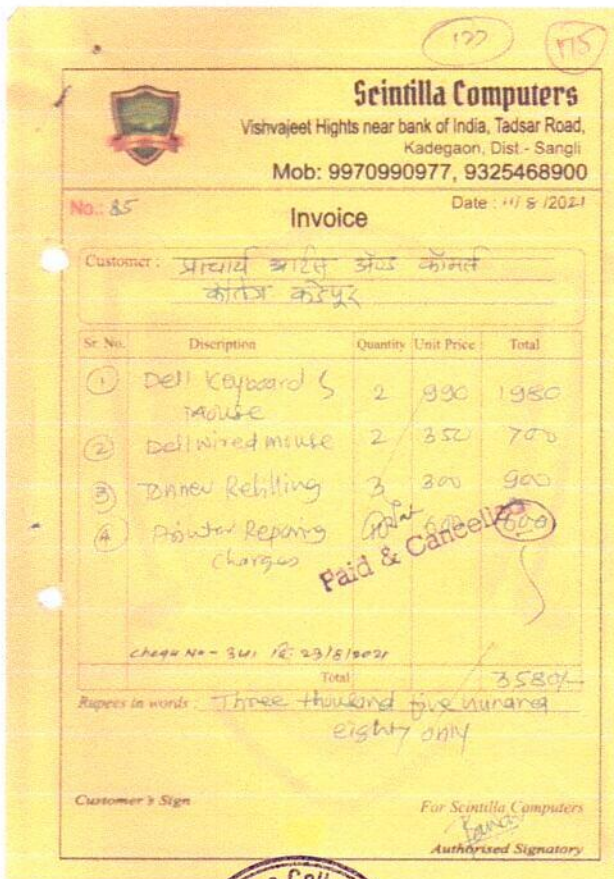 177
175
Scintilla Computers
Vishvajeet Hights near bank of India, Tadsar Road,
Kadegaon, Dist.- Sangli
Mob: 9970990977, 9325468900
No.: 85
Date : 11/8/2021
Invoice
Customer : प्राचार्य आर्टस् अँड कॉमर्स
कॉलेज कडेपूर
Sr. No. Discription Quantity Unit Price Total
1 Dell Keyboard & 2 990 1980
mouse
2 Dell wired mouse 2 350 700
3 Tonner Refilling 3 300 900
4 Printer Reparing 600
Charges
Paid & Cancelled
Cheque No - 341 दि. 23/8/2021
Total 3580/-
Rupees in words : Three thousand five hundred
eighty only
Customer's Sign
For Scintilla Computers
Authorised Signatory